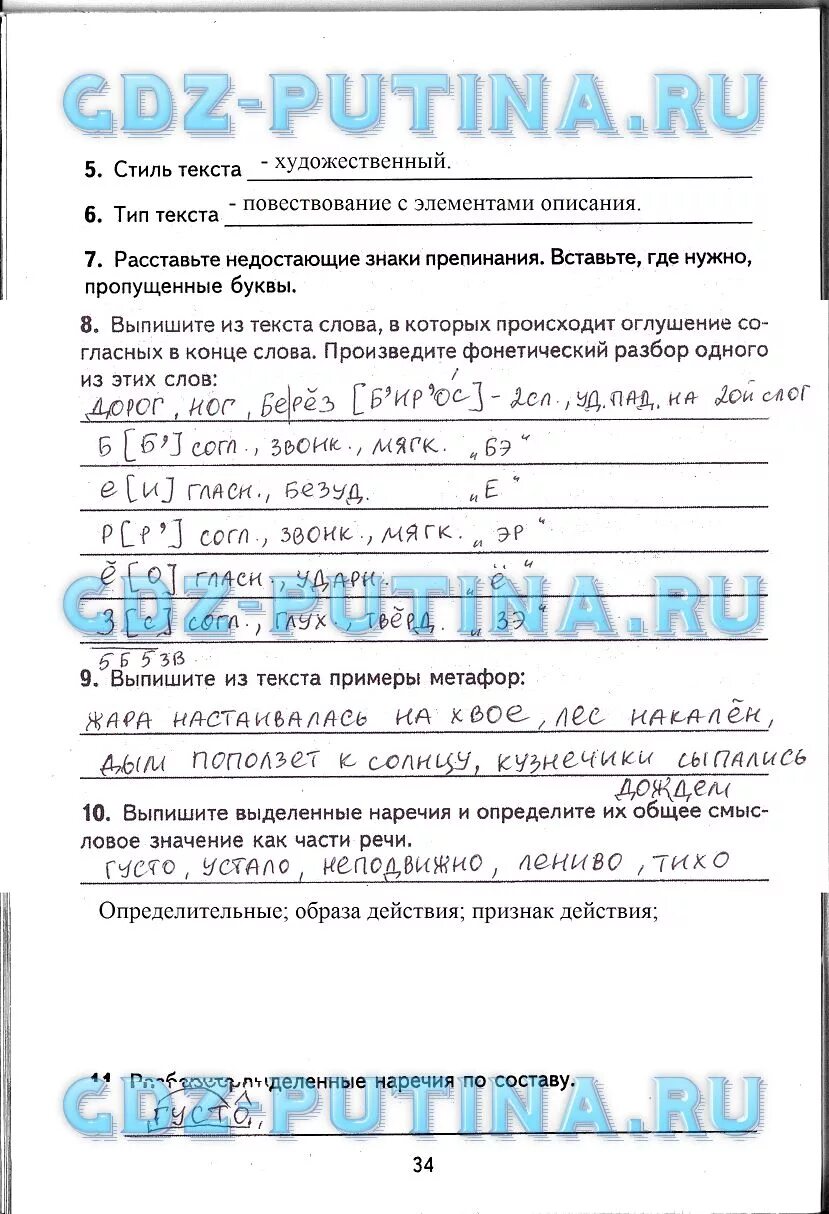 GDZ-PUTINA.RU
5. Стиль текста - художественный.
6. Тип текста - повествование с элементами описания.
7. Расставьте недостающие знаки препинания. Вставьте, где нужно,
пропущенные буквы.
8. Выпишите из текста слова, в которых происходит оглушение со-
гласных в конце слова. Произведите фонетический разбор одного
из этих слов:
ДОРОГ, НОГ, БЕ|РЁЗ [Б'ИР'ОС] - 2СЛ., УД. ПАД. НА 2ОЙ СЛОГ
Б [Б'] СОГЛ., ЗВОНК., МЯГК. „БЭ“
е [И] ГЛАСН., БЕЗУД. „Е“
Р [Р'] СОГЛ., ЗВОНК., МЯГК. „ЭР“
Ё [О] ГЛАСН., УДАРН. „Ё“
GDZ-PUTINA.RU
З [С] СОГЛ., ГЛУХ., ТВЁРД. „ЗЭ“
5 Б 5 ЗВ
9. Выпишите из текста примеры метафор:
ЖАРА НАСТАИВАЛАСЬ НА ХВОЕ, ЛЕС НАКАЛЁН,
ДЫМ ПОПОЛЗЕТ К СОЛНЦУ, КУЗНЕЧИКИ СЫПАЛИСЬ
ДОЖДЕМ
10. Выпишите выделенные наречия и определите их общее смыс-
ловое значение как части речи.
ГУСТО, УСТАЛО, НЕПОДВИЖНО, ЛЕНИВО, ТИХО
Определительные; образа действия; признак действия;
11. выделенные наречия по составу.
GDZ-PUTINA.RU
ГУСТО,
34